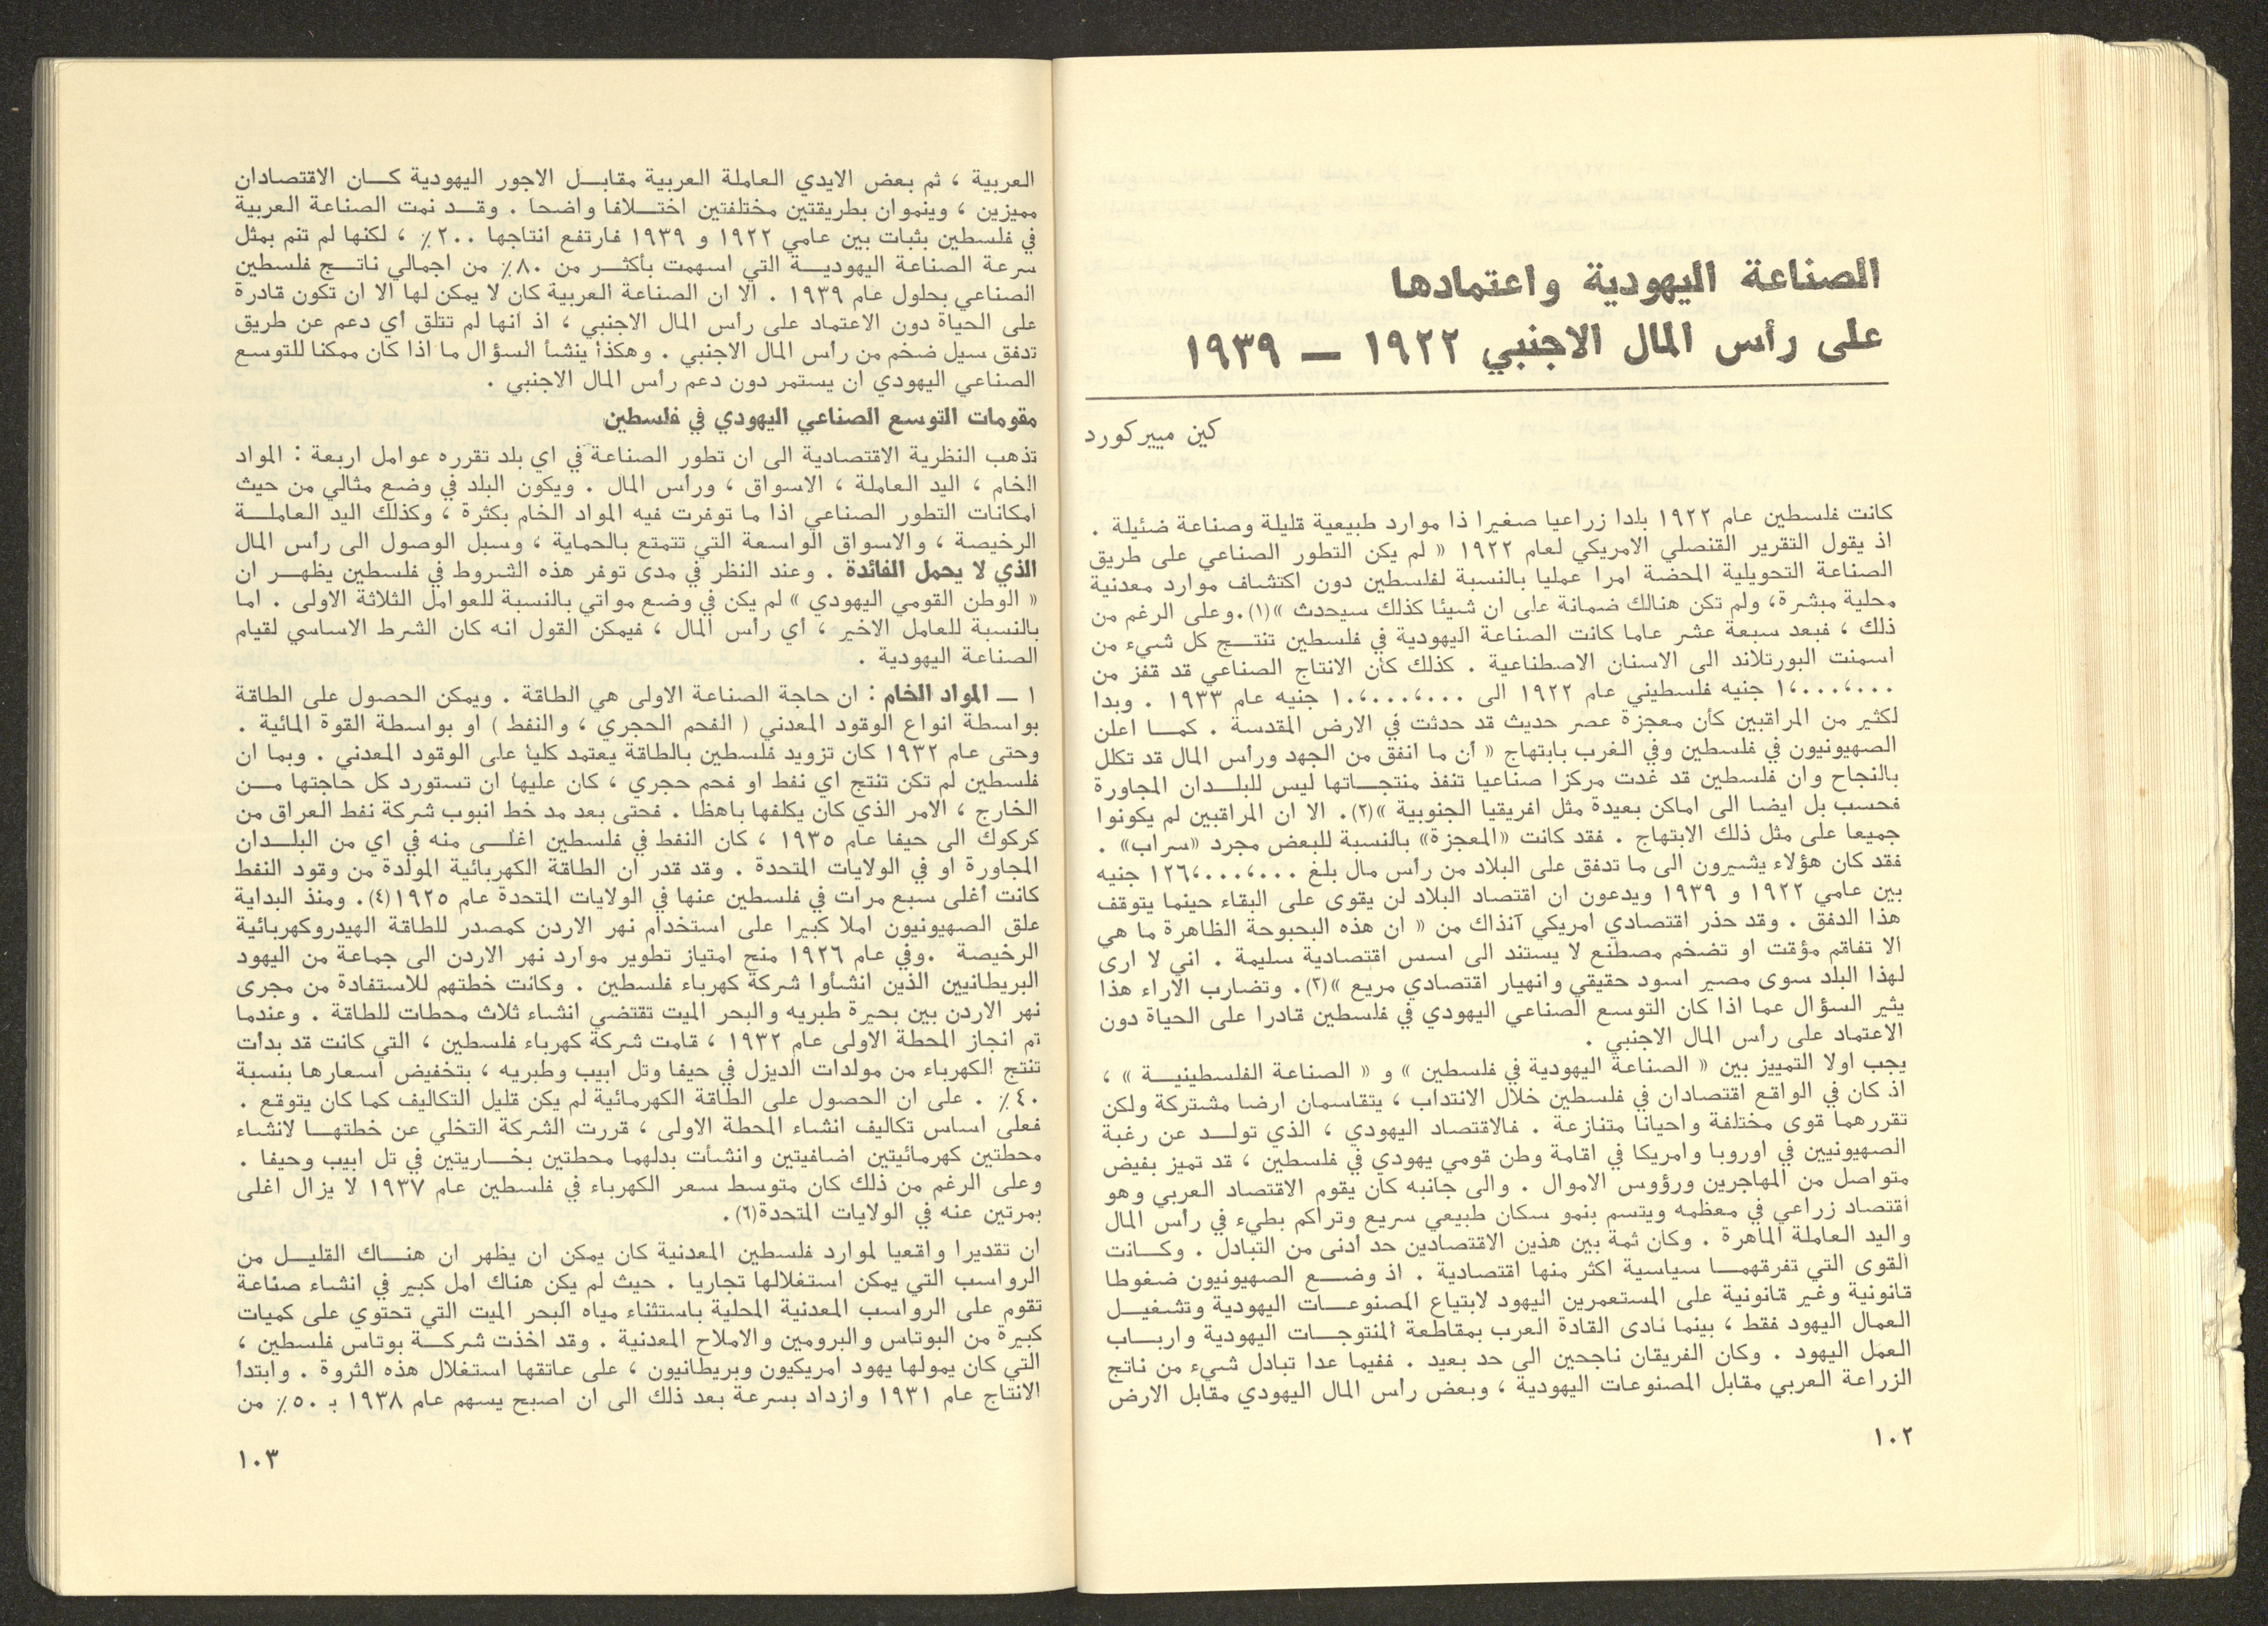 الصناعة اليهودية واعتمادها
على رأس المال الاجنبي ١٩٢٢ — ١٩٣٩
كين مييركورد
كانت فلسطين عام ١٩٢٢ بلدا زراعيا صغيرا ذا موارد طبيعية قليلة وصناعة ضئيلة .
اذ يقول التقرير القنصلي الامريكي لعام ١٩٢٢ « لم يكن التطور الصناعي على طريق
الصناعة التحويلية المحضة امرا عمليا بالنسبة لفلسطين دون اكتشاف موارد معدنية
محلية مبشرة، ولم تكن هنالك ضمانة على ان شيئا كذلك سيحدث »(١).وعلى الرغم من
ذلك ، فبعد سبعة عشر عاما كانت الصناعة اليهودية في فلسطين تنتج كل شيء من
اسمنت البورتلاند الى الاسنان الاصطناعية . كذلك كان الانتاج الصناعي قد قفز من
١،٠٠٠،٠٠٠ جنيه فلسطيني عام ١٩٢٢ الى ١٠،٠٠٠،٠٠٠ جنيه عام ١٩٣٣ . وبدا
لكثير من المراقبين كأن معجزة عصر حديث قد حدثت في الارض المقدسة . كما اعلن
الصهيونيون في فلسطين وفي الغرب بابتهاج « أن ما انفق من الجهد ورأس المال قد تكلل
بالنجاح وان فلسطين قد غدت مركزا صناعيا تنفذ منتجاتها ليس للبلدان المجاورة
فحسب بل ايضا الى اماكن بعيدة مثل افريقيا الجنوبية »(٢). الا ان المراقبين لم يكونوا
جميعا على مثل ذلك الابتهاج . فقد كانت «المعجزة» بالنسبة للبعض مجرد «سراب» .
فقد كان هؤلاء يشيرون الى ما تدفق على البلاد من رأس مال بلغ ١٢٦،٠٠٠،٠٠٠ جنيه
بين عامي ١٩٢٢ و ١٩٣٩ ويدعون ان اقتصاد البلاد لن يقوى على البقاء حينما يتوقف
هذا الدفق . وقد حذر اقتصادي امريكي آنذاك من « ان هذه البحبوحة الظاهرة ما هي
الا تفاقم مؤقت او تضخم مصطنع لا يستند الى اسس اقتصادية سليمة . اني لا ارى
لهذا البلد سوى مصير اسود حقيقي وانهيار اقتصادي مريع »(٣). وتضارب الاراء هذا
يثير السؤال عما اذا كان التوسع الصناعي اليهودي في فلسطين قادرا على الحياة دون
الاعتماد على رأس المال الاجنبي .
يجب اولا التمييز بين « الصناعة اليهودية في فلسطين » و « الصناعة الفلسطينية » ،
اذ كان في الواقع اقتصادان في فلسطين خلال الانتداب ، يتقاسمان ارضا مشتركة ولكن
تقررهما قوى مختلفة واحيانا متنازعة . فالاقتصاد اليهودي ، الذي تولد عن رغبة
الصهيونيين في اوروبا وامريكا في اقامة وطن قومي يهودي في فلسطين ، قد تميز بفيض
متواصل من المهاجرين ورؤوس الاموال . والى جانبه كان يقوم الاقتصاد العربي وهو
اقتصاد زراعي في معظمه ويتسم بنمو سكان طبيعي سريع وتراكم بطيء في رأس المال
واليد العاملة الماهرة . وكان ثمة بين هذين الاقتصادين حد أدنى من التبادل . وكانت
القوى التي تفرقهما سياسية اكثر منها اقتصادية . اذ وضع الصهيونيون ضغوطا
قانونية وغير قانونية على المستعمرين اليهود لابتياع المصنوعات اليهودية وتشغيل
العمال اليهود فقط ، بينما نادى القادة العرب بمقاطعة المنتوجات اليهودية وارباب
العمل اليهود . وكان الفريقان ناجحين الى حد بعيد . ففيما عدا تبادل شيء من ناتج
الزراعة العربي مقابل المصنوعات اليهودية ، وبعض رأس المال اليهودي مقابل الارض
١٠٢
العربية ، ثم بعض الايدي العاملة العربية مقابل الاجور اليهودية كان الاقتصادان
مميزين ، وينموان بطريقتين مختلفتين اختلافا واضحا . وقد نمت الصناعة العربية
في فلسطين بثبات بين عامي ١٩٢٢ و ١٩٣٩ فارتفع انتاجها ٢٠٠٪ ، لكنها لم تنم بمثل
سرعة الصناعة اليهودية التي اسهمت بأكثر من ٨٠٪ من اجمالي ناتج فلسطين
الصناعي بحلول عام ١٩٣٩ . الا ان الصناعة العربية كان لا يمكن لها الا ان تكون قادرة
على الحياة دون الاعتماد على رأس المال الاجنبي ، اذ انها لم تتلق أي دعم عن طريق
تدفق سيل ضخم من رأس المال الاجنبي . وهكذا ينشأ السؤال ما اذا كان ممكنا للتوسع
الصناعي اليهودي ان يستمر دون دعم رأس المال الاجنبي .
مقومات التوسع الصناعي اليهودي في فلسطين
تذهب النظرية الاقتصادية الى ان تطور الصناعة في اي بلد تقرره عوامل اربعة : المواد
الخام ، اليد العاملة ، الاسواق ، ورأس المال . ويكون البلد في وضع مثالي من حيث
امكانات التطور الصناعي اذا ما توفرت فيه المواد الخام بكثرة ، وكذلك اليد العاملة
الرخيصة ، والاسواق الواسعة التي تتمتع بالحماية ، وسبل الوصول الى رأس المال
الذي لا يحمل الفائدة . وعند النظر في مدى توفر هذه الشروط في فلسطين يظهر ان
« الوطن القومي اليهودي » لم يكن في وضع مواتي بالنسبة للعوامل الثلاثة الاولى . اما
بالنسبة للعامل الاخير ، أي رأس المال ، فيمكن القول انه كان الشرط الاساسي لقيام
الصناعة اليهودية .
١ — المواد الخام : ان حاجة الصناعة الاولى هي الطاقة . ويمكن الحصول على الطاقة
بواسطة انواع الوقود المعدني ( الفحم الحجري ، والنفط ) او بواسطة القوة المائية .
وحتى عام ١٩٣٢ كان تزويد فلسطين بالطاقة يعتمد كليا على الوقود المعدني . وبما ان
فلسطين لم تكن تنتج اي نفط او فحم حجري ، كان عليها ان تستورد كل حاجتها من
الخارج ، الامر الذي كان يكلفها باهظا . فحتى بعد مد خط انبوب شركة نفط العراق من
كركوك الى حيفا عام ١٩٣٥ ، كان النفط في فلسطين اغلى منه في اي من البلدان
المجاورة او في الولايات المتحدة . وقد قدر ان الطاقة الكهربائية المولدة من وقود النفط
كانت أغلى سبع مرات في فلسطين عنها في الولايات المتحدة عام ١٩٢٥(٤). ومنذ البداية
علق الصهيونيون املا كبيرا على استخدام نهر الاردن كمصدر للطاقة الهيدروكهربائية
الرخيصة .وفي عام ١٩٢٦ منح امتياز تطوير موارد نهر الاردن الى جماعة من اليهود
البريطانيين الذين انشأوا شركة كهرباء فلسطين . وكانت خطتهم للاستفادة من مجرى
نهر الاردن بين بحيرة طبريه والبحر الميت تقتضي انشاء ثلاث محطات للطاقة . وعندما
تم انجاز المحطة الاولى عام ١٩٣٢ ، قامت شركة كهرباء فلسطين ، التي كانت قد بدأت
تنتج الكهرباء من مولدات الديزل في حيفا وتل ابيب وطبريه ، بتخفيض اسعارها بنسبة
٤٠٪ . على ان الحصول على الطاقة الكهرمائية لم يكن قليل التكاليف كما كان يتوقع .
فعلى اساس تكاليف انشاء المحطة الاولى ، قررت الشركة التخلي عن خطتها لانشاء
محطتين كهرمائيتين اضافيتين وانشأت بدلهما محطتين بخاريتين في تل ابيب وحيفا .
وعلى الرغم من ذلك كان متوسط سعر الكهرباء في فلسطين عام ١٩٣٧ لا يزال اغلى
بمرتين عنه في الولايات المتحدة(٦).
ان تقديرا واقعيا لموارد فلسطين المعدنية كان يمكن ان يظهر ان هناك القليل من
الرواسب التي يمكن استغلالها تجاريا . حيث لم يكن هناك امل كبير في انشاء صناعة
تقوم على الرواسب المعدنية المحلية باستثناء مياه البحر الميت التي تحتوي على كميات
كبيرة من البوتاس والبرومين والاملاح المعدنية . وقد اخذت شركة بوتاس فلسطين ،
التي كان يمولها يهود امريكيون وبريطانيون ، على عاتقها استغلال هذه الثروة . وابتدا
الانتاج عام ١٩٣١ وازداد بسرعة بعد ذلك الى ان اصبح يسهم عام ١٩٣٨ بـ ٥٠٪ من
١٠٣